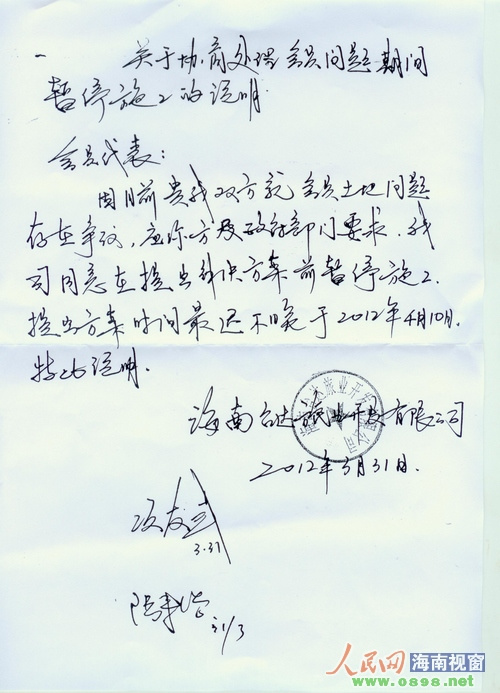 关于协商处理会员问题期间
暂停施工的说明
会员代表：
因目前贵我双方就会员土地问题
存在争议，应你方及政府部门要求，我
司同意在提出解决方案前暂停施工，
提出方案时间最迟不晚于2012年4月10日.
特此说明.
海南台达旅业开发有限公司
2012年3月31日.
3.31
31/3
人民网 海南视窗
www.0898.net